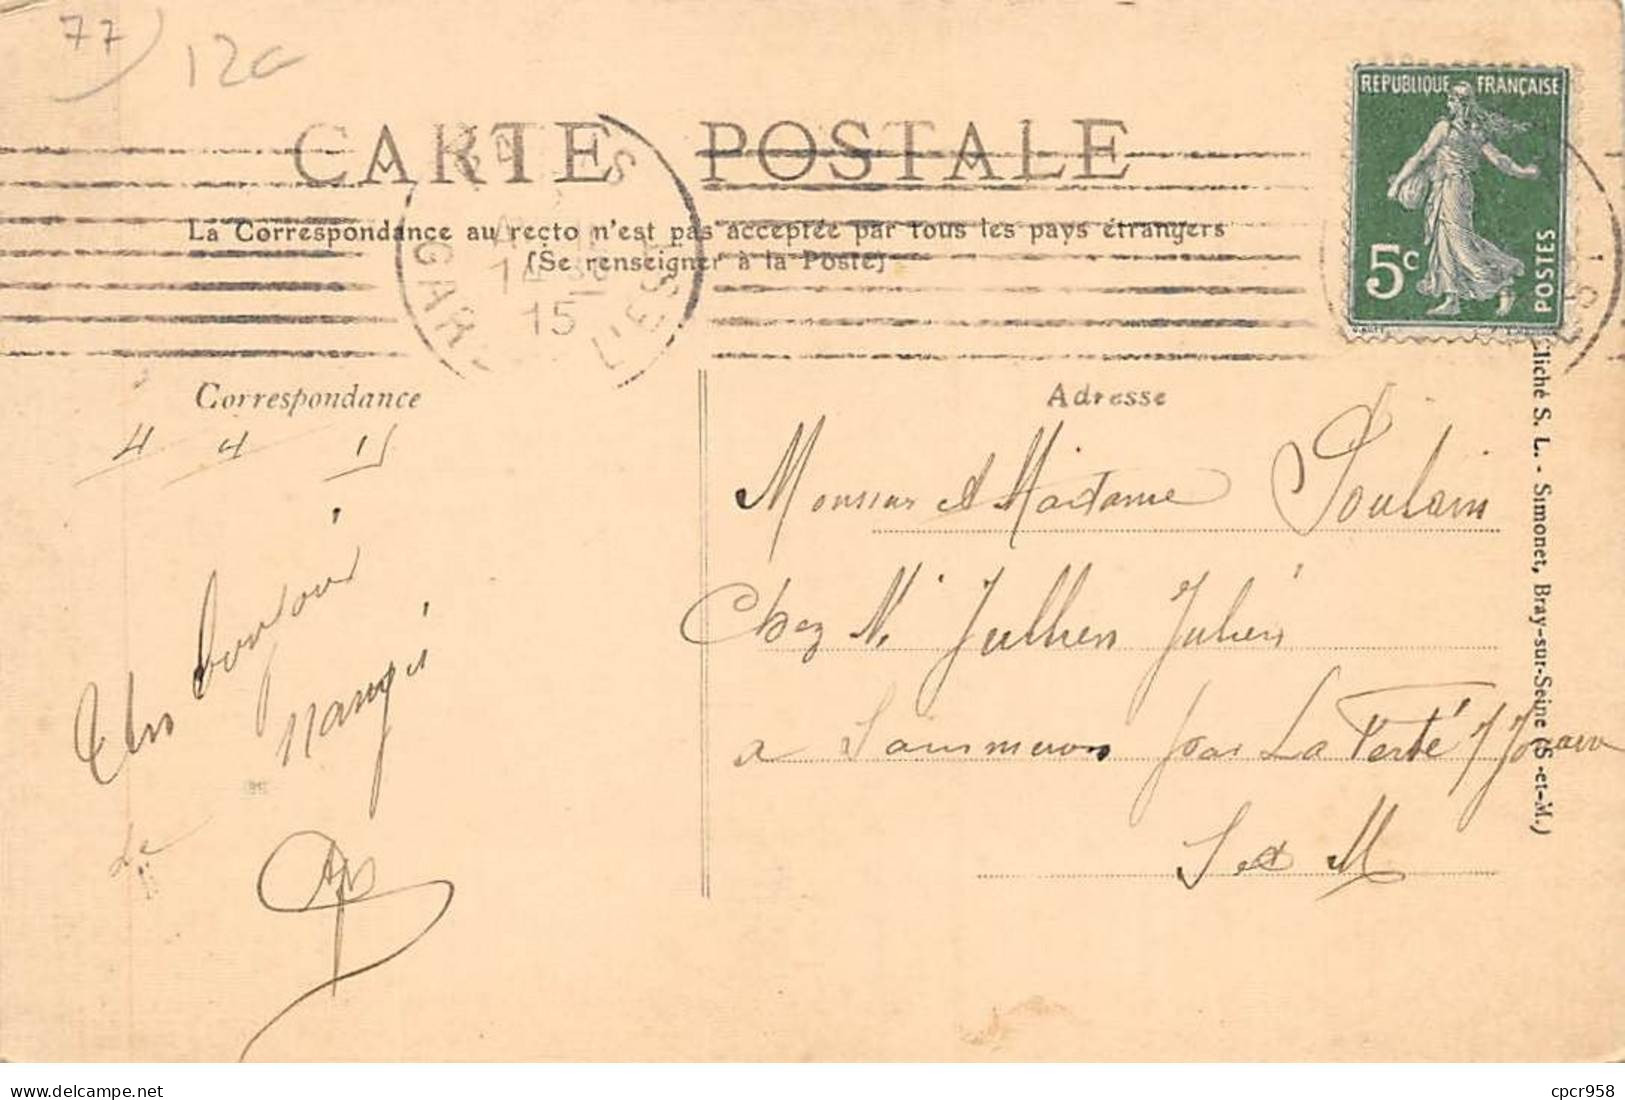 77
12c
CARTE POSTALE
La Correspondance au recto n'est pas acceptée par tous les pays étrangers
(Se renseigner à la Poste)
REPUBLIQUE FRANÇAISE
5c
POSTES
GARE
15
L'EST
Correspondance
4 4 15
Un bonjour
nangis
Adresse
Monsieur et Madame Poulain
Chez M. Jullien Julien
a Sammeron par La Ferté s/ Jouarre
S et M
Cliché S. L. - Simonet, Bray-sur-Seine (S-et-M.)
cpcr958